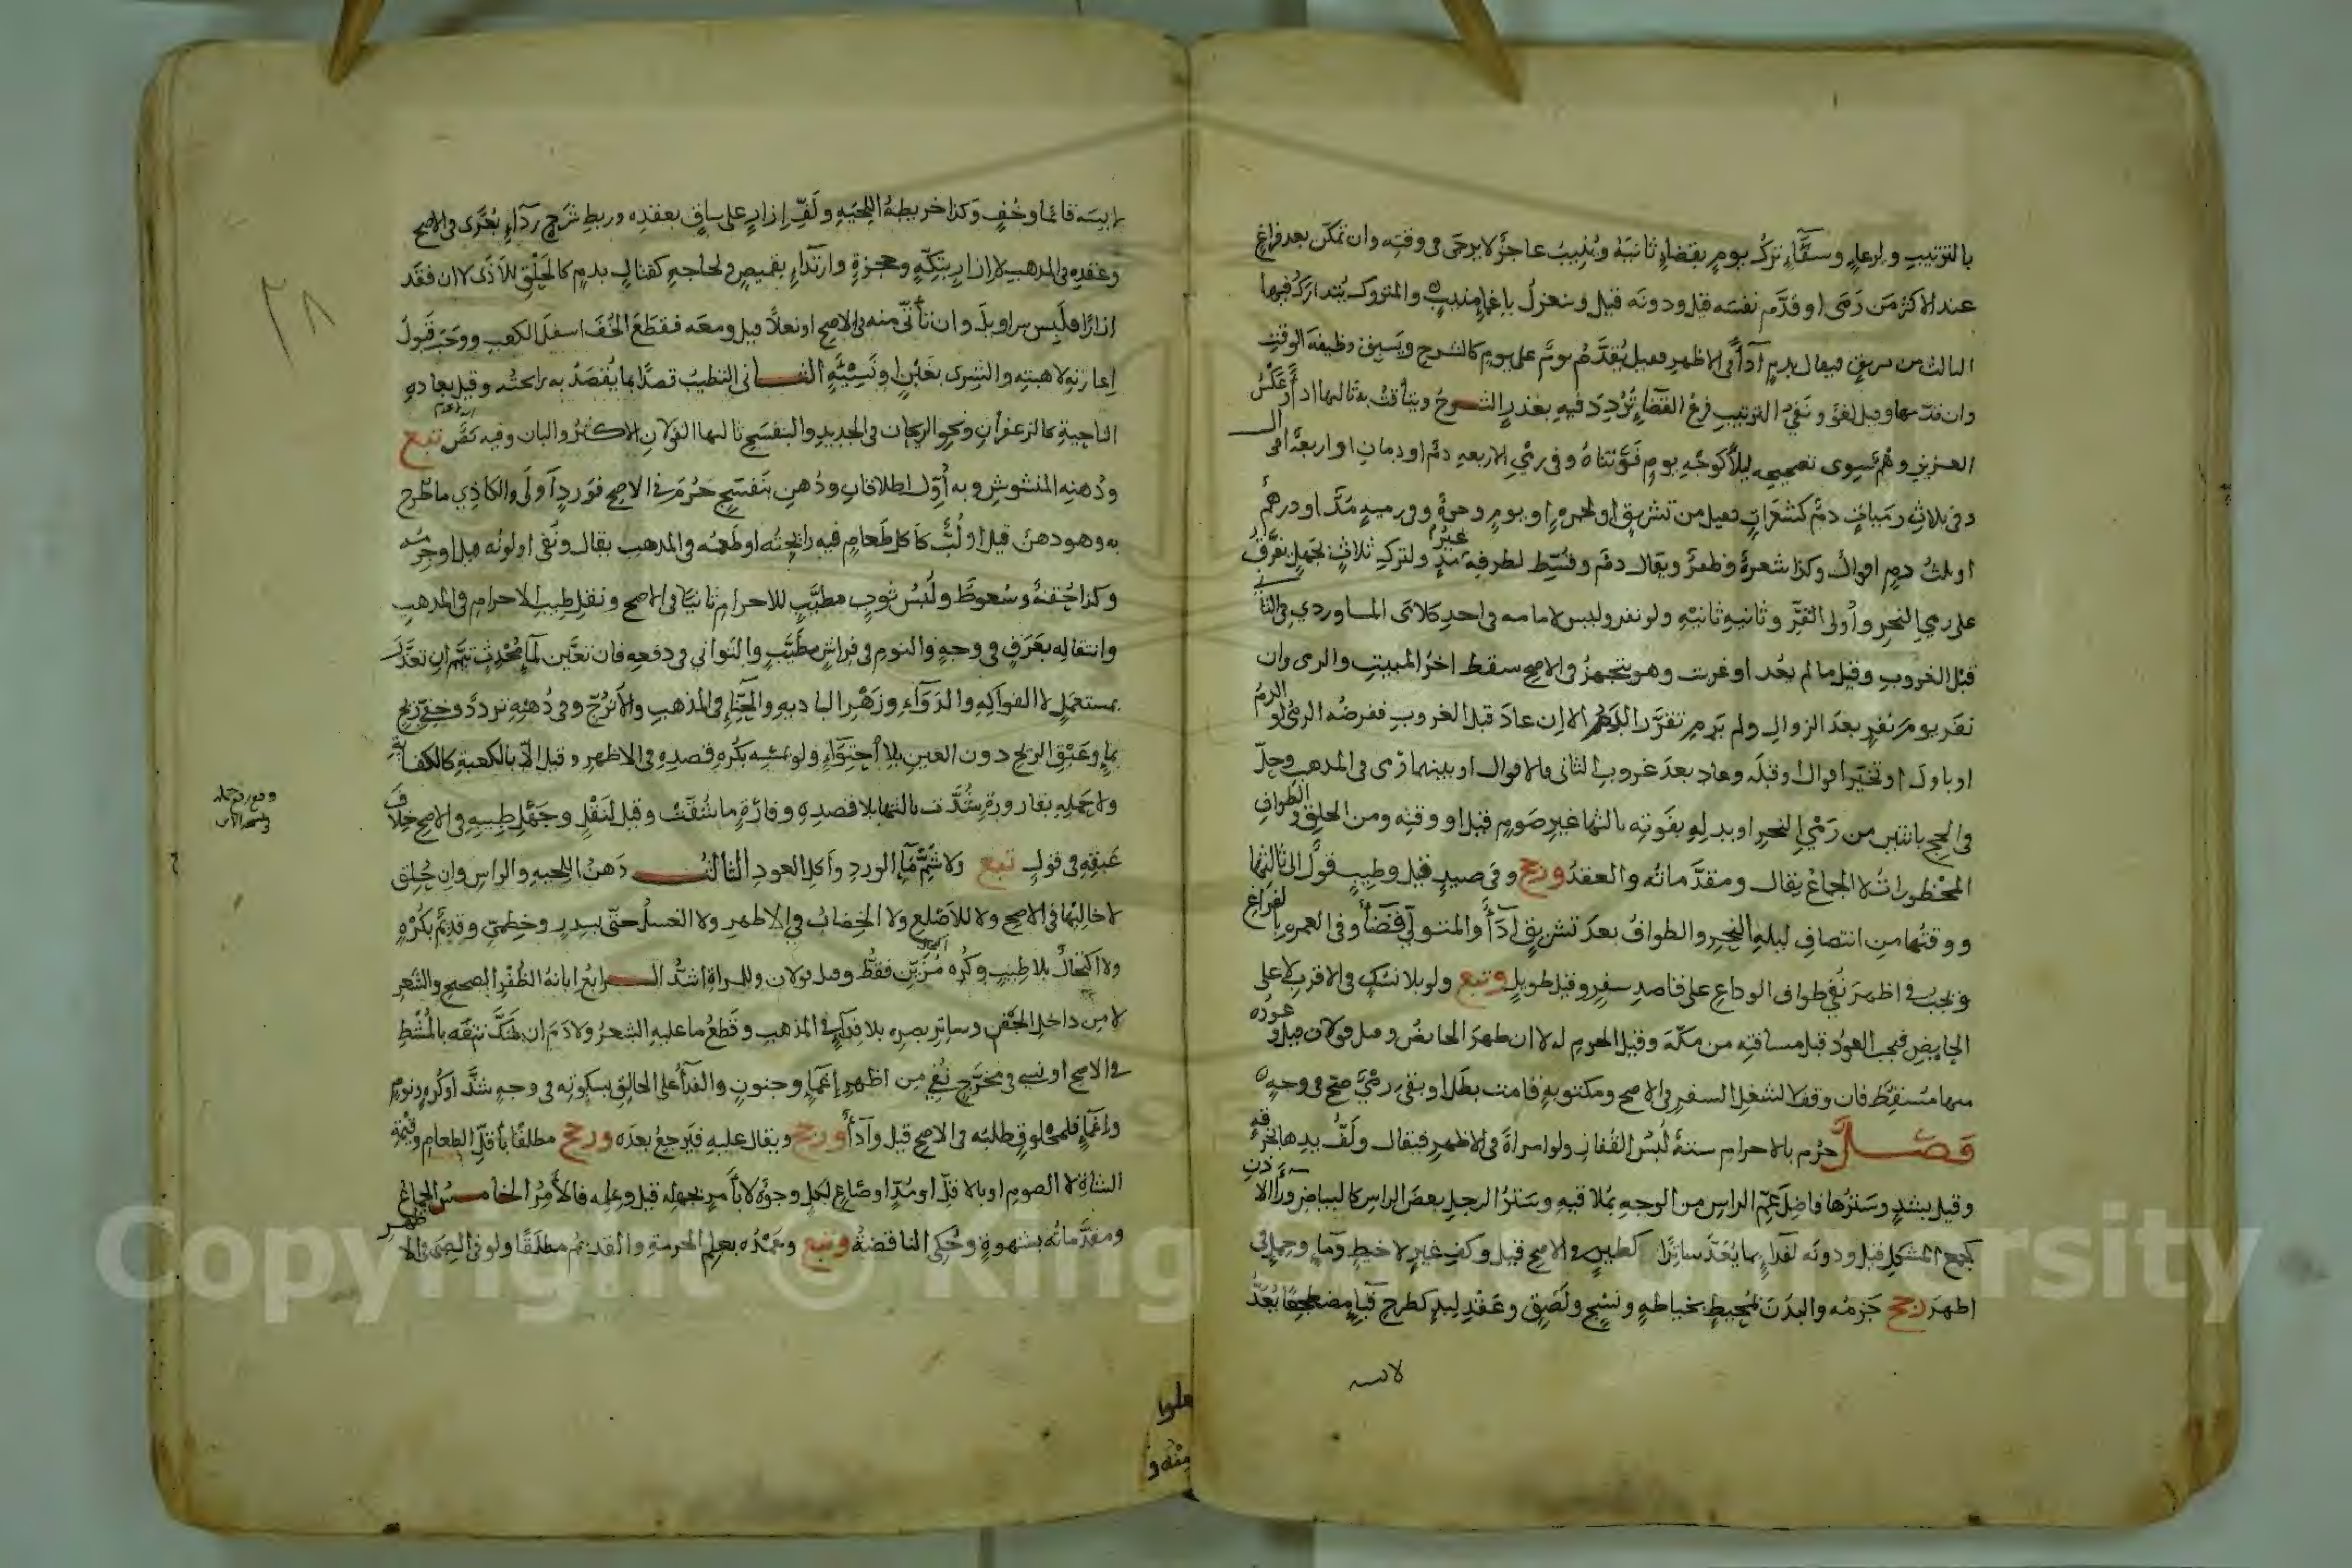 بالترتيب ولرعاء وسقاء ترك يوم بقضاء ثانيه وينيب عاجز لا يرجى في وقته وان تمكن بعد فراغ
عند الاكثر من رمى او قدم نفسه قيل ودونه قيل وينعزل باغماء منيب والمتروك يتدارك فيها
الثالث من سبق فيقال بدم اداء في الاظهر فقيل يقدم يوم على يوم كالشرح ويسبق وظيفة الوقت
وان قدمها وقيل لغو ونفي الترتيب فرع القضاء تردد فيه بعذر الشرح ويتاقت به ثالثها اداء وعكس
العزيز وهم سوى تصحيحه ليلا كوجه يوم فوتناه وفي رمي الاربعه دم او دمان او اربعة
وفي ثلاث رميات دم كشعرات فقيل من تشريق او نحره او يوم وجمرة وفي رمية مد او درهم
او ثلث دم اقوال وكذا شعرة وظفر ويقال دم وقسط لطرفه مد ولترك ثلاث بجهل تفرق
على رمي النحر وأولى القر وثانيه ثانيه ولو نفر وليس في احد كلامي الماوردي في الثاني
قبل الغروب وقيل ما لم يعد او غربت وهو يتجهز في الاصح سقط اخر المبيت والرمي وان
نفر يوم نفر بعد الزوال ولم يرم تقرر الدم الا ان عاد قبل الغروب ففرضه الرمي او الدم
او باول او تخير اقوال او قبله وعاد بعد غروب الثاني فالاقوال او بينهما رمى في المذهب وحل
في الحج باثنين من رمي النحر او بدله بفوته ثالثها غير صوم قيل او وقته ومن الحلق والطواف
المحظورات لا الجماع يقال ومقدماته والعقد ورجح وفي صيد قيل وطيب قول الى ثالثها
ووقتها من انتصاف ليلة النحر والطواف بعد تشريق اداء والمتولي قضاء وفي العمرة بالفراغ
ويجب في اظهر نفي طواف الوداع على قاصد سفر وقيل طويل وتبع ولو بلا نسك في الاقرب لا على
الحايض فيجب العود قبل مسافته من مكة وقيل الحرم له لا ان طهر الحائض وقيل قولان
منها مسقط فان وقف لا لشغل السفر في الاصح ومكتوبة قامت بطل او بقي رمي صح في وجه
فصل حرم بالاحرام ستة لبس القفاز ولو امراة في الاظهر فيقال ولف يدها بخرقة
وقيل بشد وسترها فاضل عم الراس من الوجه بملاقيه وستر الرجل بعض الراس كالبياض وراء الاذن
كجمع المشكل قيل ودونه لفداء بما يعد ساترا كطين في الاصح قيل وكف غير لا خيط وماء وحمل في
اظهر رجح جزمه والبدن لمحيط بخياطه ونسج ولصق وعقد لبد كطرح قباء مضطجعا يعد
لابسه
لابسه قائما وخف وكذا خريطة اللحيه ولف ازار على ساق بعقده وربط شرج رداء بعرى في الاصح
وعقده في المذهب لا ازار بتكة وحجزة وارتداء بقميص ولحاجه كقتال بدم كالحلق للاذى لا ان فقد
ازارا فلبس سراويل وان تاتى منه في الاصح او نعلا قيل ومعه فقطع الخف اسفل الكعب ووجب قبول
اعارته لا هبته والشرى بغبن او نسية الثاني التطيب قصدا بما يقصد به رائحته وقيل بعادة
الناحية كالزعفران ونحو الريحان في الجديد والبنفسج ثالثها القولان الاكثر والبان وفيه نص تبع
ودهنه المنشوش وبه أول اطلاقات ودهن بنفسج حرم في الاصح فورد اولى والكاذي ما طرح
به وهو دهن قيل او لت كاكل طعام فيه رائحته او طعمه في المذهب يقال ونفي او لونه قيل او جرمه
وكذا حقنة وسعوط ولبس ثوب مطيب للاحرام ثانيا في الاصح ونقل طيب الاحرام في المذهب
وانتقاله بعرق في وجه والنوم في فراش مطيب والتواني في دفعه فان تعين لما محدث تيمم ان تعذر
بمستعمل لا الفواكه والدواء وزهر الباديه والحناء في المذهب والاترج وفي دهنه تردد وخفي ريح
بماء وعبق الريح دون العين بلا احتواء ولو بمسه بكره قصده في الاظهر وقيل الا بالكعبة
ولا حمله بقارورة شدت ثالثها بلا قصده وفارة ما شقت وقيل لنقل وجهل طيبه في الاصح خلاف
عبقه في قول تبع ولا شم ماء الورد واكل العود الثالث دهن اللحيه والراس وان حلق
لا خاليها في الاصح ولا للاصلع ولا الخضاب في الاظهر ولا الغسل حتى بسدر وخطمي وقديم بكره
ولا اكتحال بلا طيب وكره مزين فقط وقيل قولان وللمراة اشد الرابع ابانة الظفر الصحيح والشعر
لا من داخل الجفن وساتر بصره بلا فداء في المذهب وقطع ما عليه الشعر ولا دم ان شك نتفه بالمشط
في الاصح او نسي في مخرج نفي من اظهر اغماء وجنون والفداء على الحالق بسكوته في وجه شد او كره ونوم
واغماء فلمحلوق طلبه في الاصح قيل واداء ورجح ويقال عليه فيرجع بعده ورجح مطلقا باقل الطعام وقيمة
الشاة لا الصوم او بالاقل او مد او صاع لكل وجوه لا بامر بجهله قيل وعلمه فالامر الخامس الجماع
ومقدماته بشهوة وحكى الناقضة وتبع وعمده بعلم الحرمة والفديه مطلقا ولو في الصبي في الاظهر